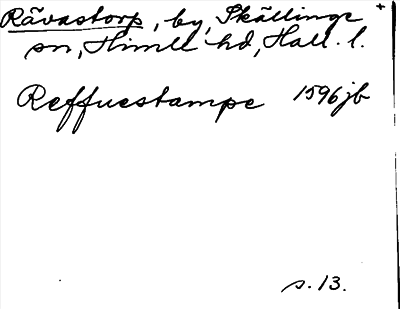 Rävastorp, by, Skällinge +
sn, Himle hd, Hall. l.
Reffuestampe 1596 jb
s. 13.